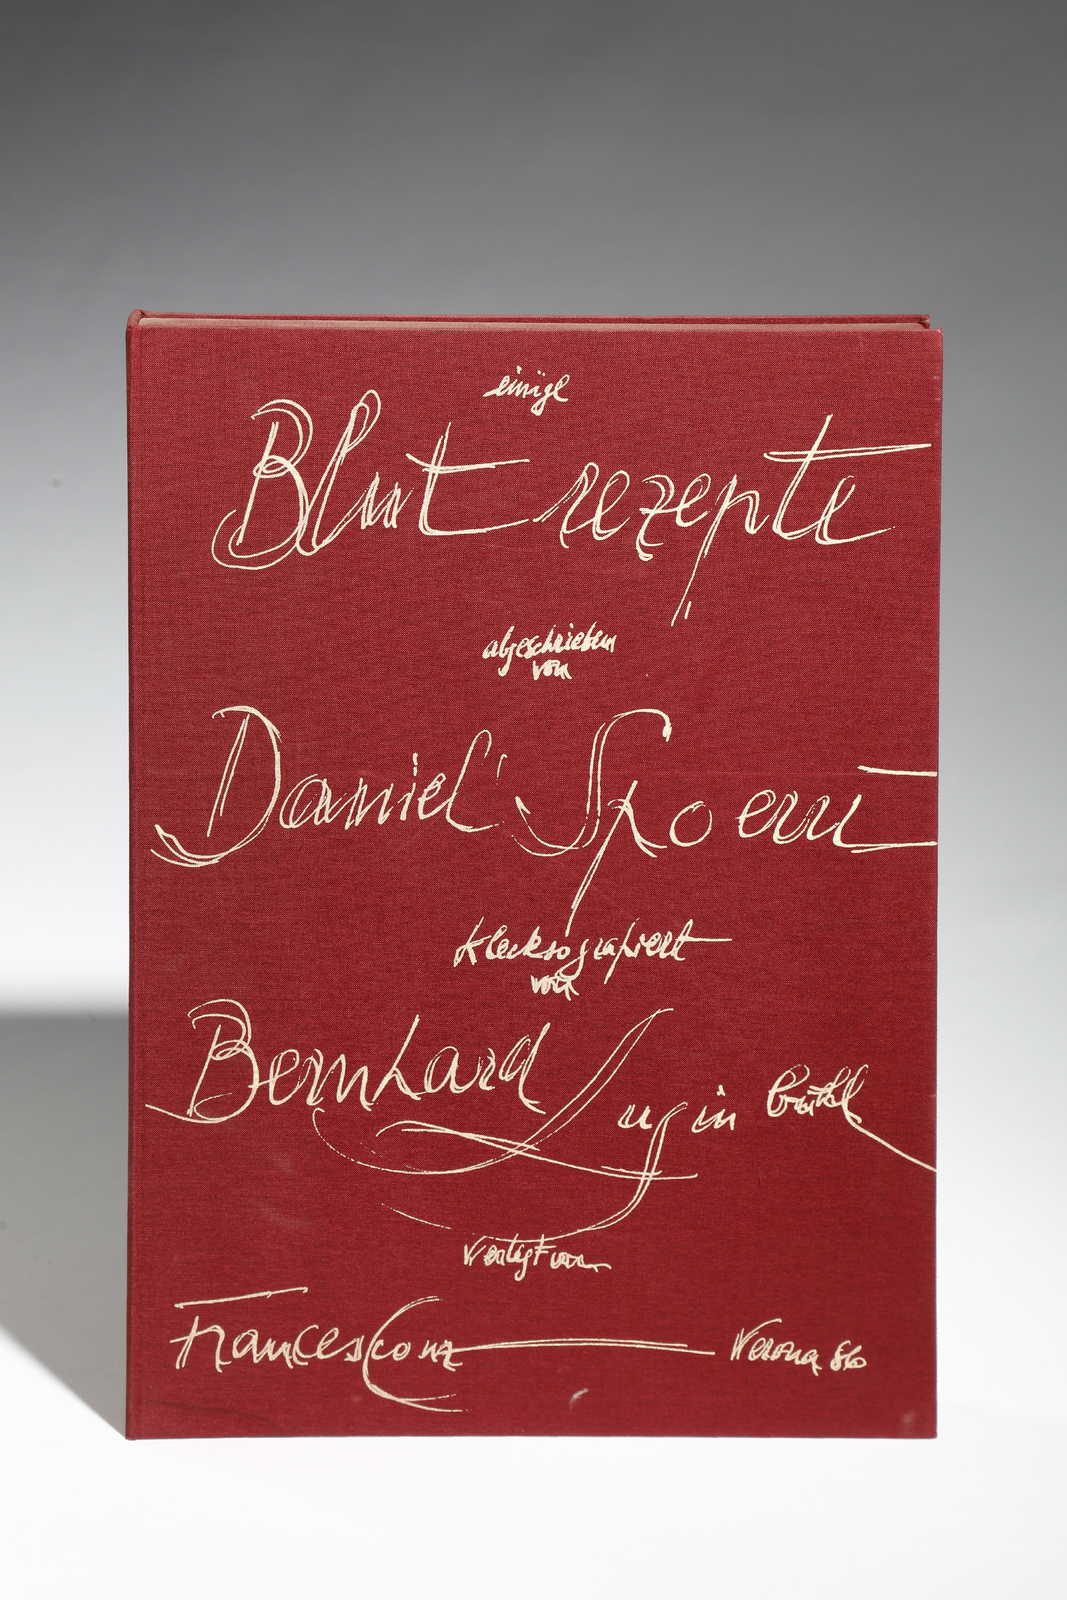 einige
Blut rezepte
abgeschrieben
von
Daniel Spoerri
klecksografiert
von
Bernhard
in brühl
verlegt von
Francesco Conz Verona 86